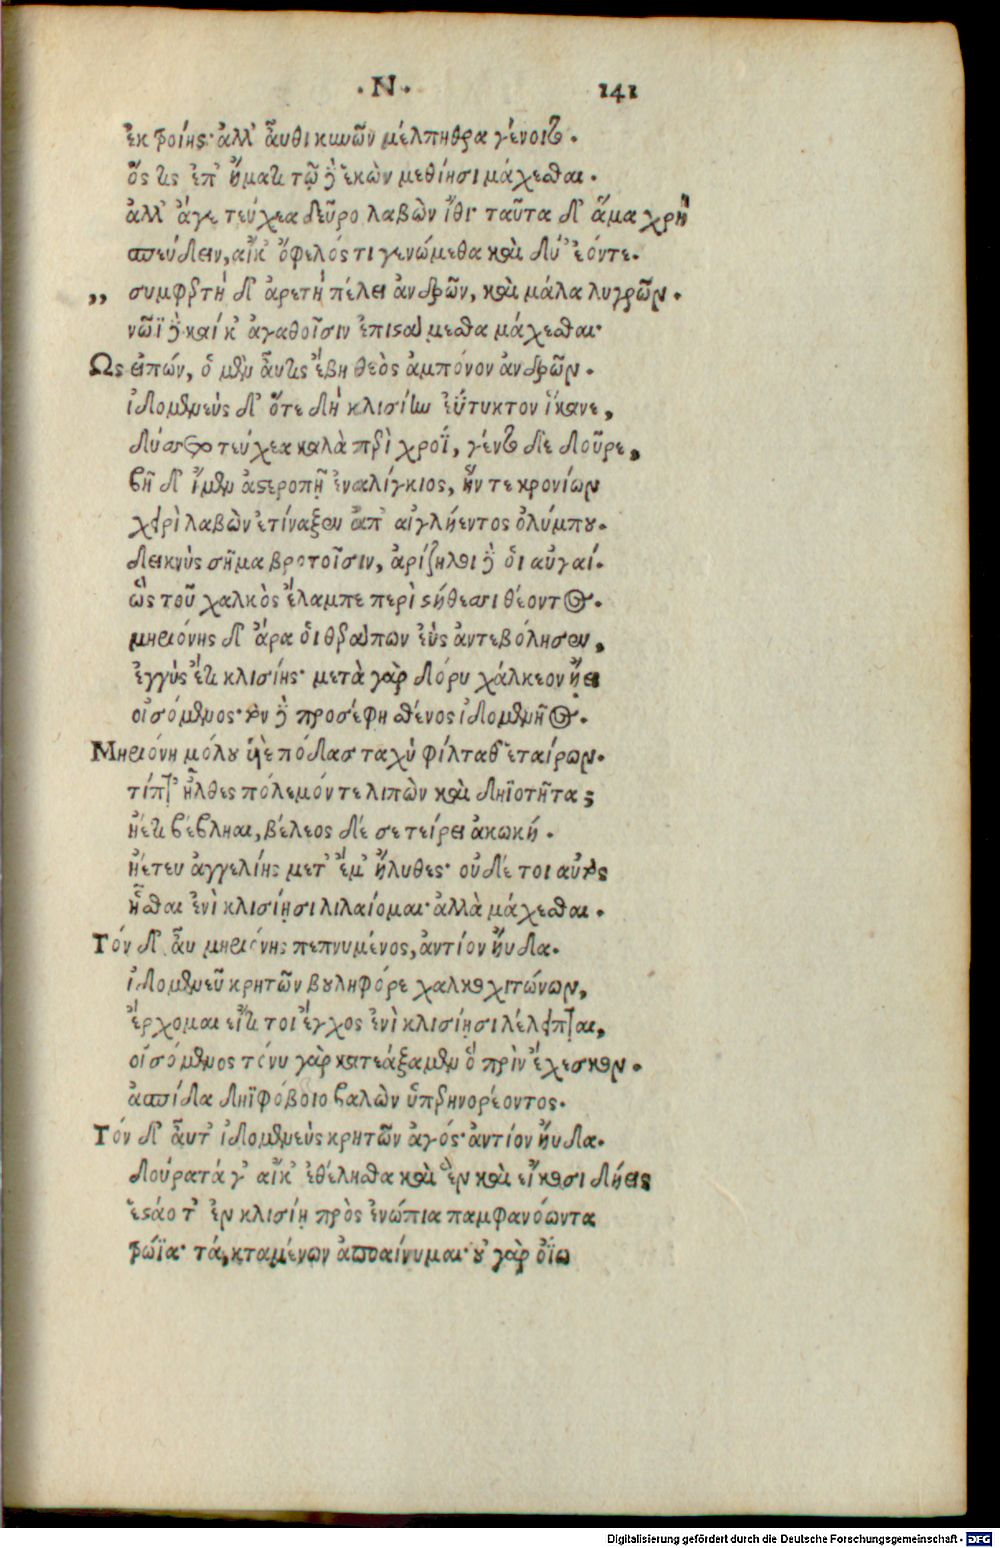 ·Ν· 141
ἐκ τροίης· ἀλλ' αὖθι κυνῶν μέλπηθρα γένοιτο.
ὅς τις ἐπ' ἤματι τῷδε ἑκὼν μεθίησι μάχεσθαι.
ἀλλ' ἄγε τεύχεα δεῦρο λαβὼν ἴθι· ταῦτα δ' ἅμα χρὴ
σπεύδειν, αἴκ' ὄφελός τι γενώμεθα καὶ δύ' ἐόντε.
„ συμφερτὴ δ' ἀρετὴ πέλει ἀνδρῶν, καὶ μάλα λυγρῶν.
νῶϊ δὲ καί κ' ἀγαθοῖσιν ἐπισταίμεσθα μάχεσθαι·
Ως εἰπών, ὁ μὲν αὖτις ἔβη θεὸς ἀμπόνον ἀνδρῶν.
ἰδομενεὺς δ' ὅτε δὴ κλισίην ἐΰτυκτον ἵκανε,
δύσατο τεύχεα καλὰ περὶ χροΐ, γέντο δὲ δοῦρε,
βῆ δ' ἴμεν ἀστεροπῇ ἐναλίγκιος, ἥν τε κρονίων
χειρὶ λαβὼν ἐτίναξεν ἀπ' αἰγλήεντος ὀλύμπου.
δεικνὺς σῆμα βροτοῖσιν, ἀρίζηλοι δέ οἱ αὐγαί.
ὣς τοῦ χαλκὸς ἔλαμπε περὶ στήθεσσι θέοντος.
μηριόνης δ' ἄρα οἱ θεράπων ἐῢς ἀντεβόλησεν,
ἐγγὺς ἔτι κλισίης· μετὰ γὰρ δόρυ χάλκεον ᾔει
οἰσόμενος· τὸν δὲ προσέφη σθένος ἰδομενῆος.
Μηριόνη μόλου υἱὲ πόδας ταχὺ φίλταθ' ἑταίρων.
τίπτ' ἦλθες πόλεμόν τε λιπὼν καὶ δηϊοτῆτα;
ἠέ τι βέβληαι, βέλεος δέ σε τείρει ἀκωκή.
ἠέ τευ ἀγγελίης μετ' ἔμ' ἤλυθες· οὐδέ τοι αὐτὸς
ἧσθαι ἐνὶ κλισίῃσι λιλαίομαι· ἀλλὰ μάχεσθαι.
Τόν δ' αὖ μηριόνης πεπνυμένος, ἀντίον ηὔδα.
ἰδομενεῦ κρητῶν βουληφόρε χαλκοχιτώνων,
ἔρχομαι εἴ τι τοι ἔγχος ἐνὶ κλισίῃσι λέλειπται,
οἰσόμενος τό νυ γὰρ κατεάξαμεν ὃ πρὶν ἔχεσκον.
ἀσπίδα δηϊφόβοιο βαλὼν ὑπερηνορέοντος.
Τόν δ' αὖτ' ἰδομενεὺς κρητῶν ἀγός· ἀντίον ηὔδα.
δούρατά γ' αἴκ' ἐθέλῃσθα καὶ ἓν καὶ εἴκοσι δήεις
ἑσταότ' ἐν κλισίῃ πρὸς ἐνώπια παμφανόωντα
τρώϊα· τά, κταμένων ἀποαίνυμαι· οὐ γὰρ ὀΐω
Digitalisierung gefördert durch die Deutsche Forschungsgemeinschaft - DFG